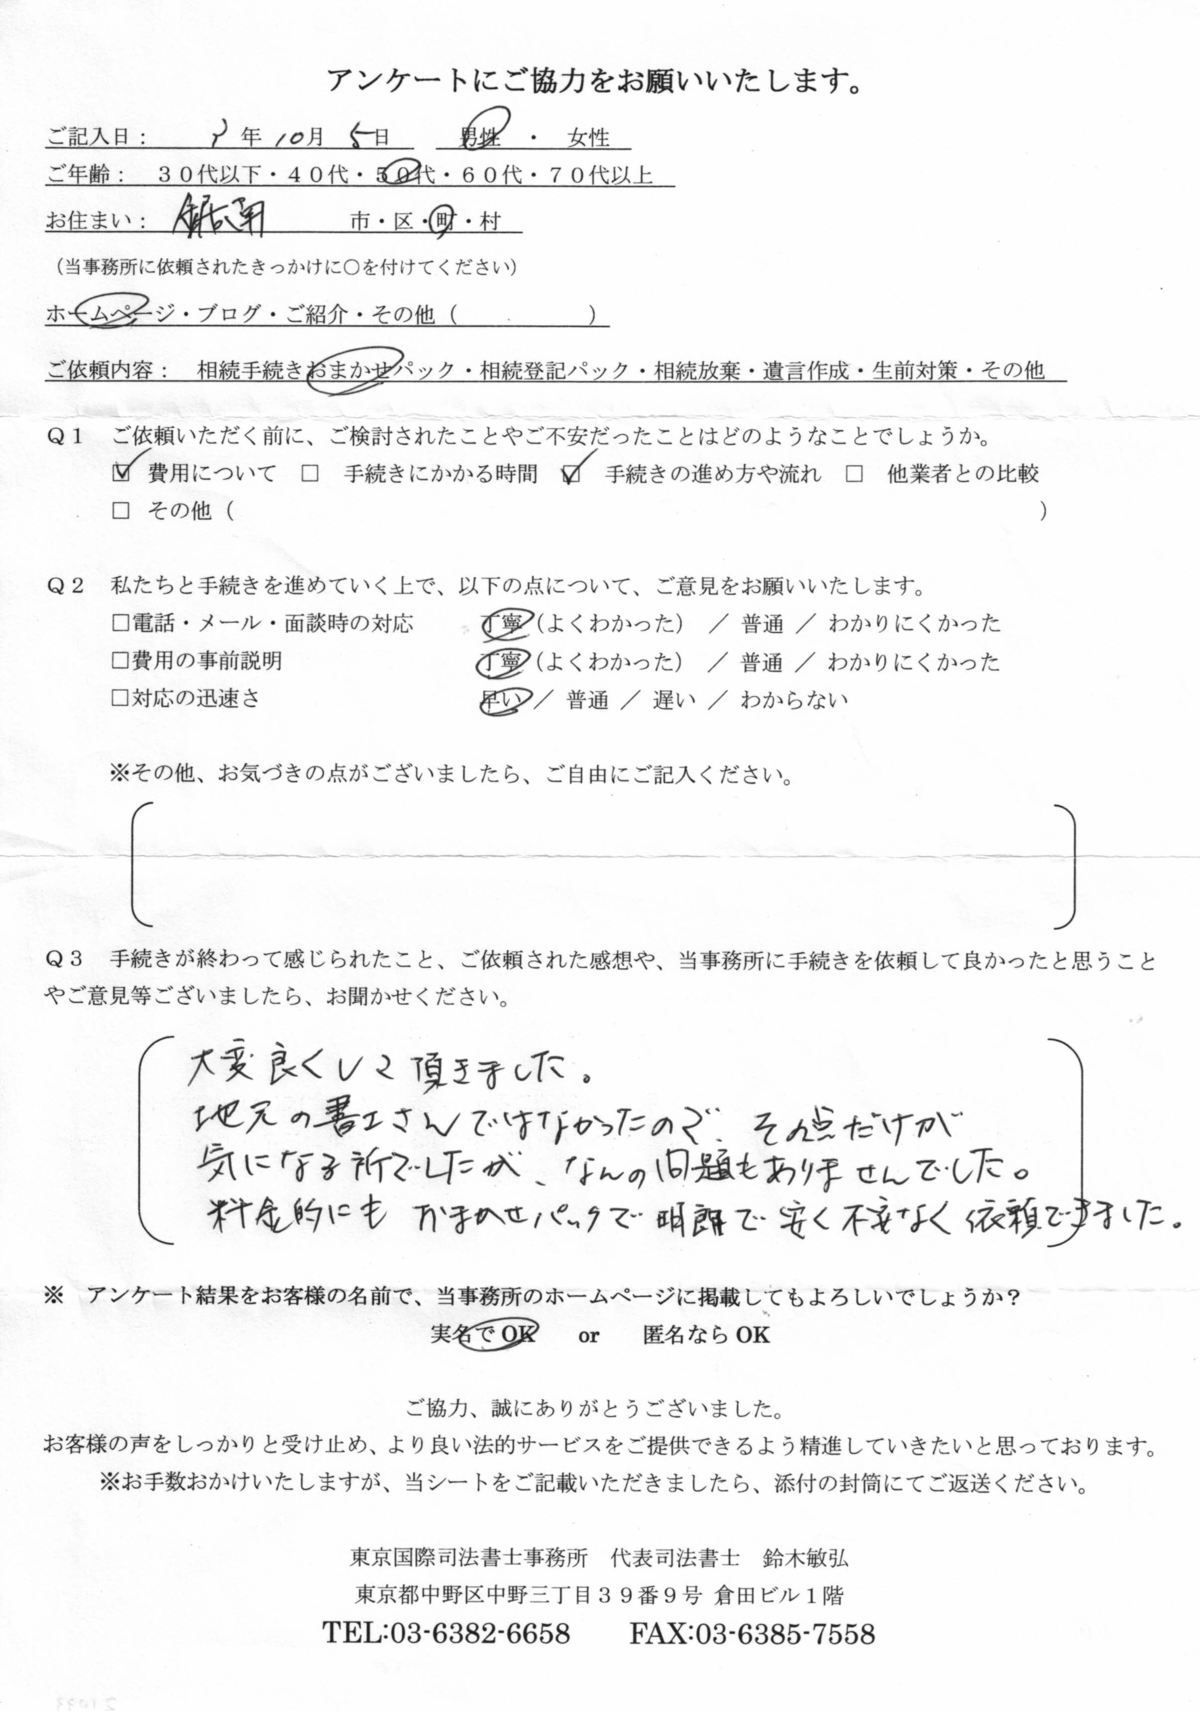 アンケートにご協力をお願いいたします。
ご記入日： 3年10月5日 男性 ・ 女性
ご年齢： ３０代以下・４０代・５０代・６０代・７０代以上
お住まい： 鋸南 市・区・町・村
（当事務所に依頼されたきっかけに○を付けてください）
ホームページ・ブログ・ご紹介・その他（ ）
ご依頼内容： 相続手続きおまかせパック・相続登記パック・相続放棄・遺言作成・生前対策・その他
Ｑ１ ご依頼いただく前に、ご検討されたことやご不安だったことはどのようなことでしょうか。
☑ 費用について □ 手続きにかかる時間 ☑ 手続きの進め方や流れ □ 他業者との比較
□ その他（ ）
Ｑ２ 私たちと手続きを進めていく上で、以下の点について、ご意見をお願いいたします。
□電話・メール・面談時の対応 丁寧（よくわかった） ／ 普通 ／ わかりにくかった
□費用の事前説明 丁寧（よくわかった） ／ 普通 ／ わかりにくかった
□対応の迅速さ 早い ／ 普通 ／ 遅い ／ わからない
※その他、お気づきの点がございましたら、ご自由にご記入ください。
Ｑ３ 手続きが終わって感じられたこと、ご依頼された感想や、当事務所に手続きを依頼して良かったと思うこと
やご意見等ございましたら、お聞かせください。
大変良くして頂きました。
地元の書士さんではなかったので、その点だけが
気になる所でしたが、なんの問題もありませんでした。
料金的にも おまかせパックで 明朗で 安く 不安なく 依頼できました。
※ アンケート結果をお客様の名前で、当事務所のホームページに掲載してもよろしいでしょうか？
実名でOK or 匿名ならOK
ご協力、誠にありがとうございました。
お客様の声をしっかりと受け止め、より良い法的サービスをご提供できるよう精進していきたいと思っております。
※お手数おかけいたしますが、当シートをご記載いただきましたら、添付の封筒にてご返送ください。
東京国際司法書士事務所 代表司法書士 鈴木敏弘
東京都中野区中野三丁目３９番９号 倉田ビル１階
TEL:03-6382-6658 FAX:03-6385-7558